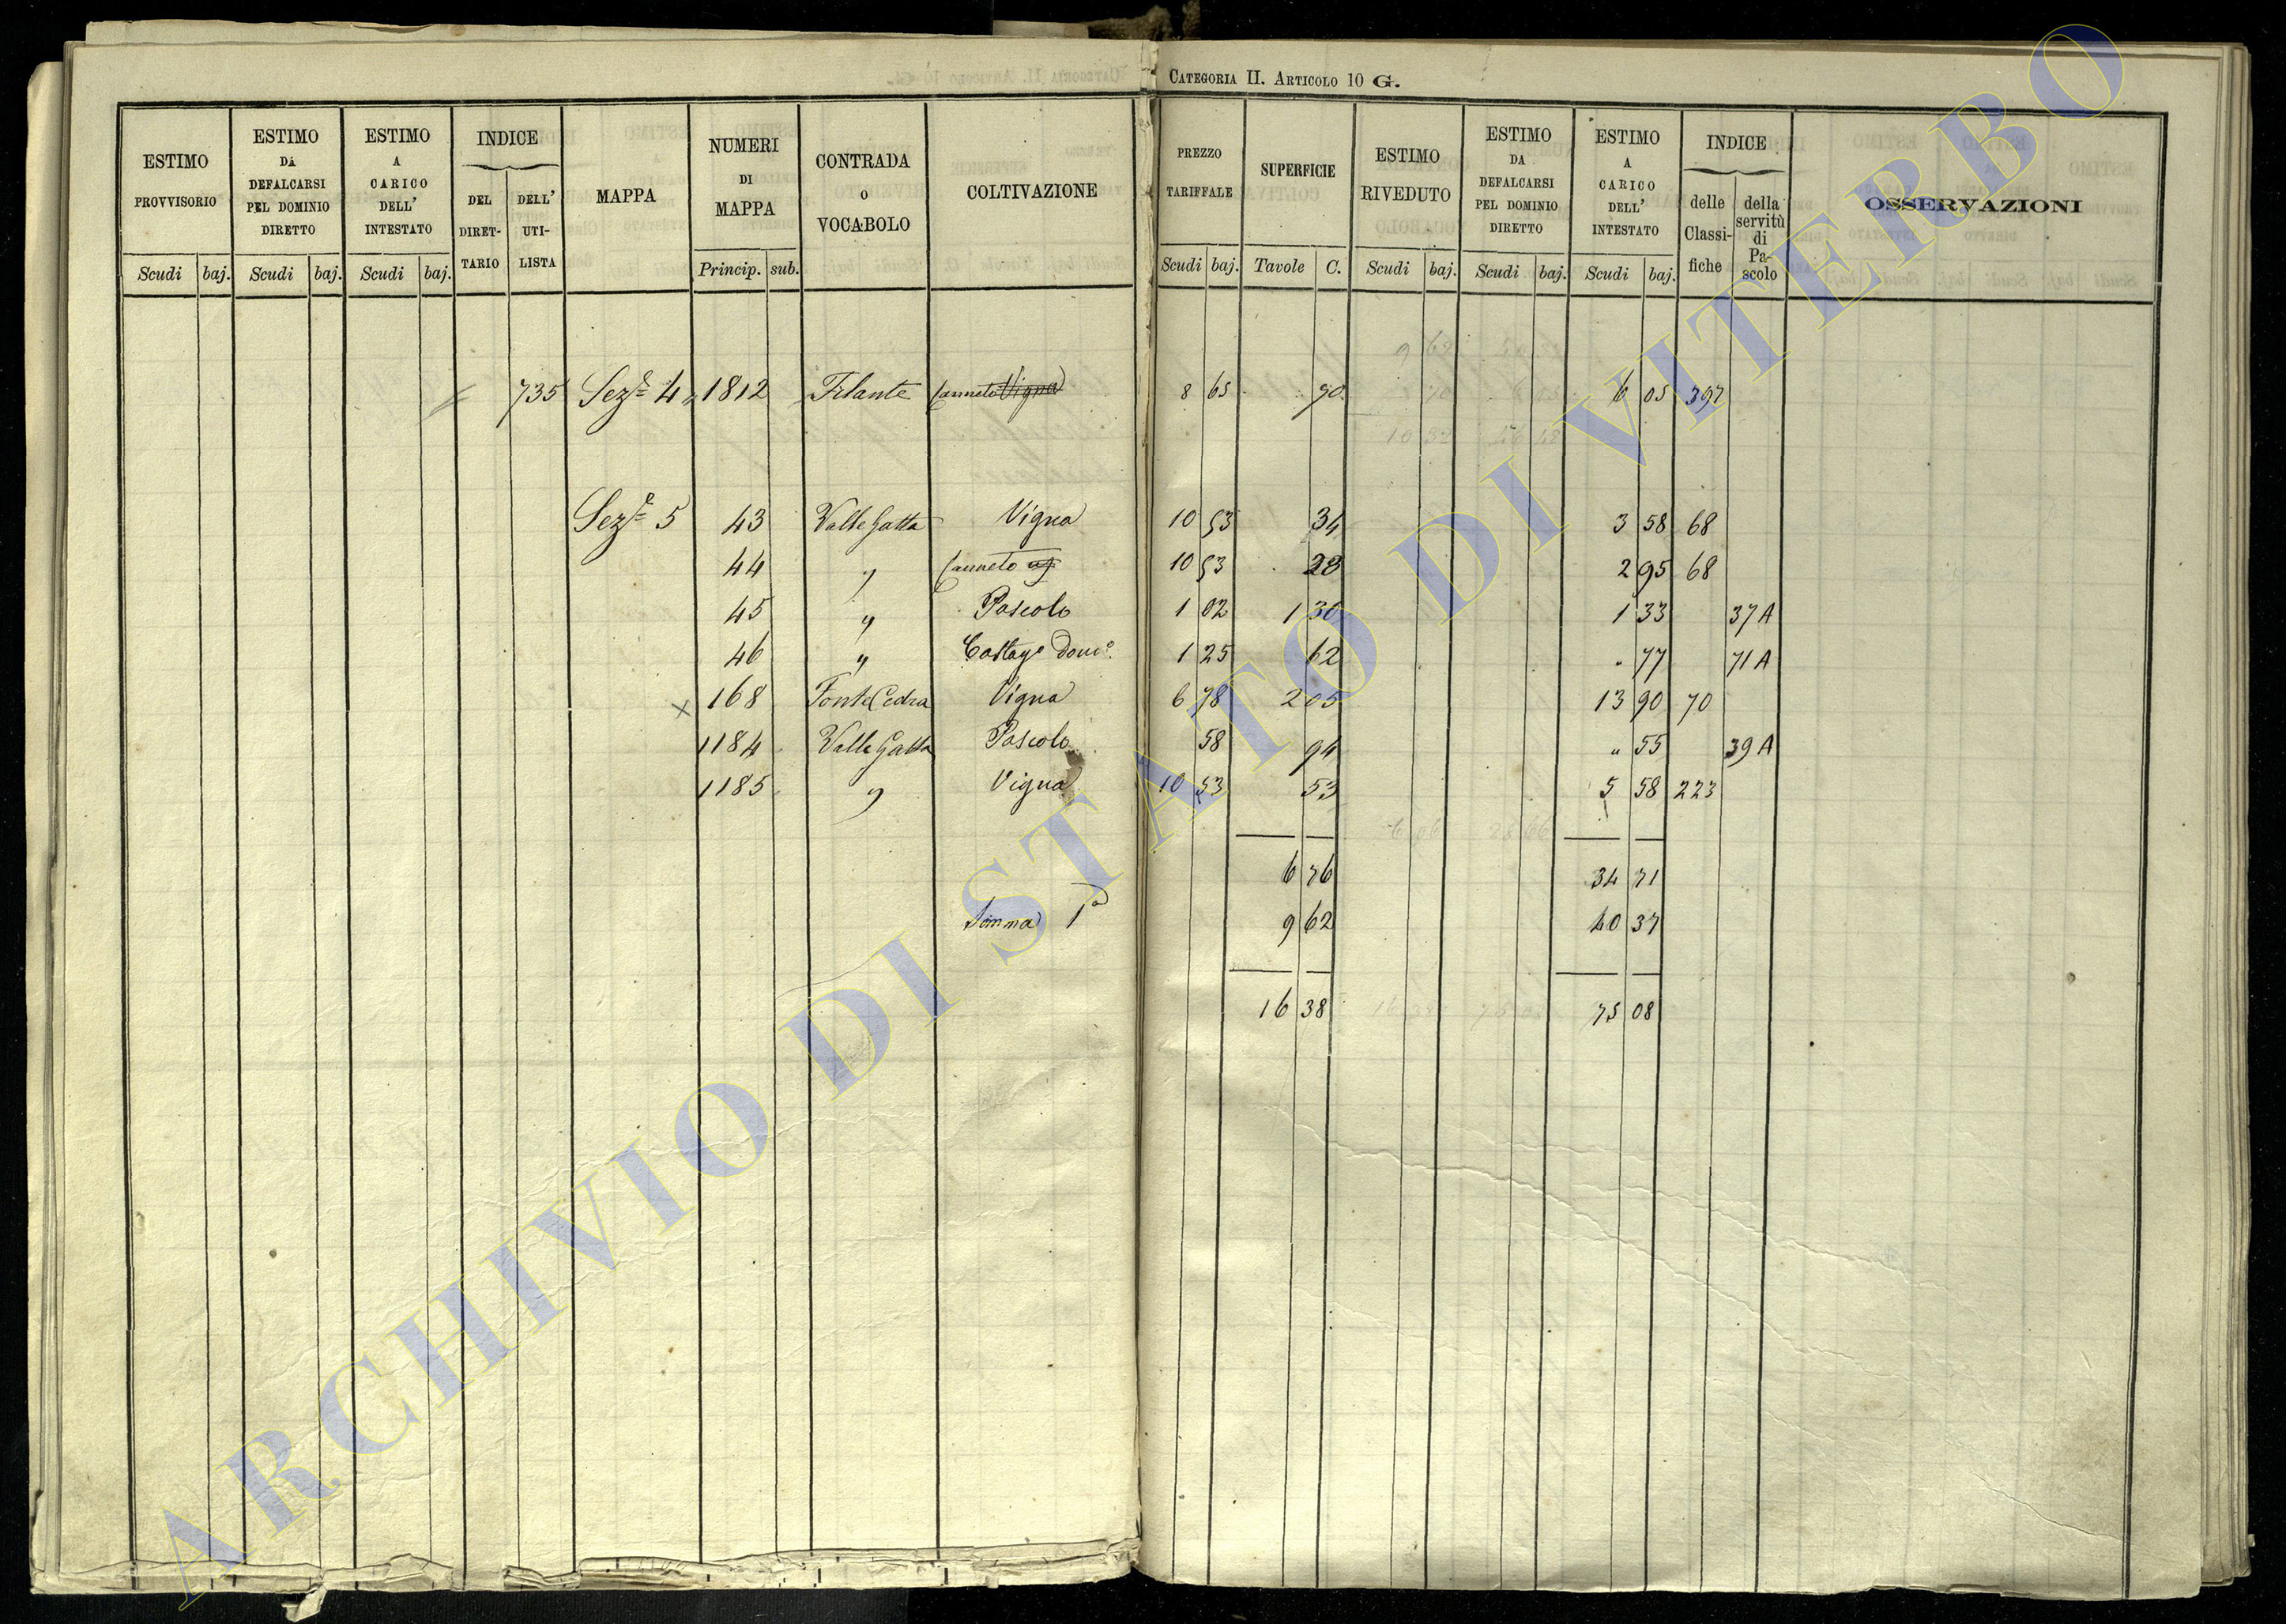 CATEGORIA II. ARTICOLO 10 G.
ESTIMO PROVVISORIO Scudi baj.
ESTIMO DA DEFALCARSI PEL DOMINIO DIRETTO Scudi baj.
ESTIMO A CARICO DELL' INTESTATO Scudi baj.
INDICE DEL DIRET-TARIO DELL' UTI-LISTA
MAPPA
NUMERI DI MAPPA Princip. sub.
CONTRADA O VOCABOLO
COLTIVAZIONE
PREZZO TARIFFALE Scudi baj.
SUPERFICIE Tavole C.
ESTIMO RIVEDUTO Scudi baj.
ESTIMO DA DEFALCARSI PEL DOMINIO DIRETTO Scudi baj.
ESTIMO A CARICO DELL' INTESTATO Scudi baj.
INDICE delle Classi-fiche della servitù di Pa-scolo
OSSERVAZIONI
735 Seze 4 " 1812 Filante Canneto Vigna 8 65 70 6 05 397
Seze 5 43 Valle Gatta Vigna 10 53 34 3 58 68
44 " Canneto 10 53 28 2 95 68
45 " Pascolo 1 02 1 30 1 33 37 A
46 " Castago Domo 1 25 62 " 77 71 A
x 168 Fonte Cedra Vigna 6 78 2 05 13 90 70
1184 Valle Gatta Pascolo 58 94 " 55 39 A
1185 " Vigna 10 53 53 5 58 223
6 76 34 71
Somma 1a 9 62 40 37
16 38 75 08
ARCHIVIO DI STATO DI VITERBO